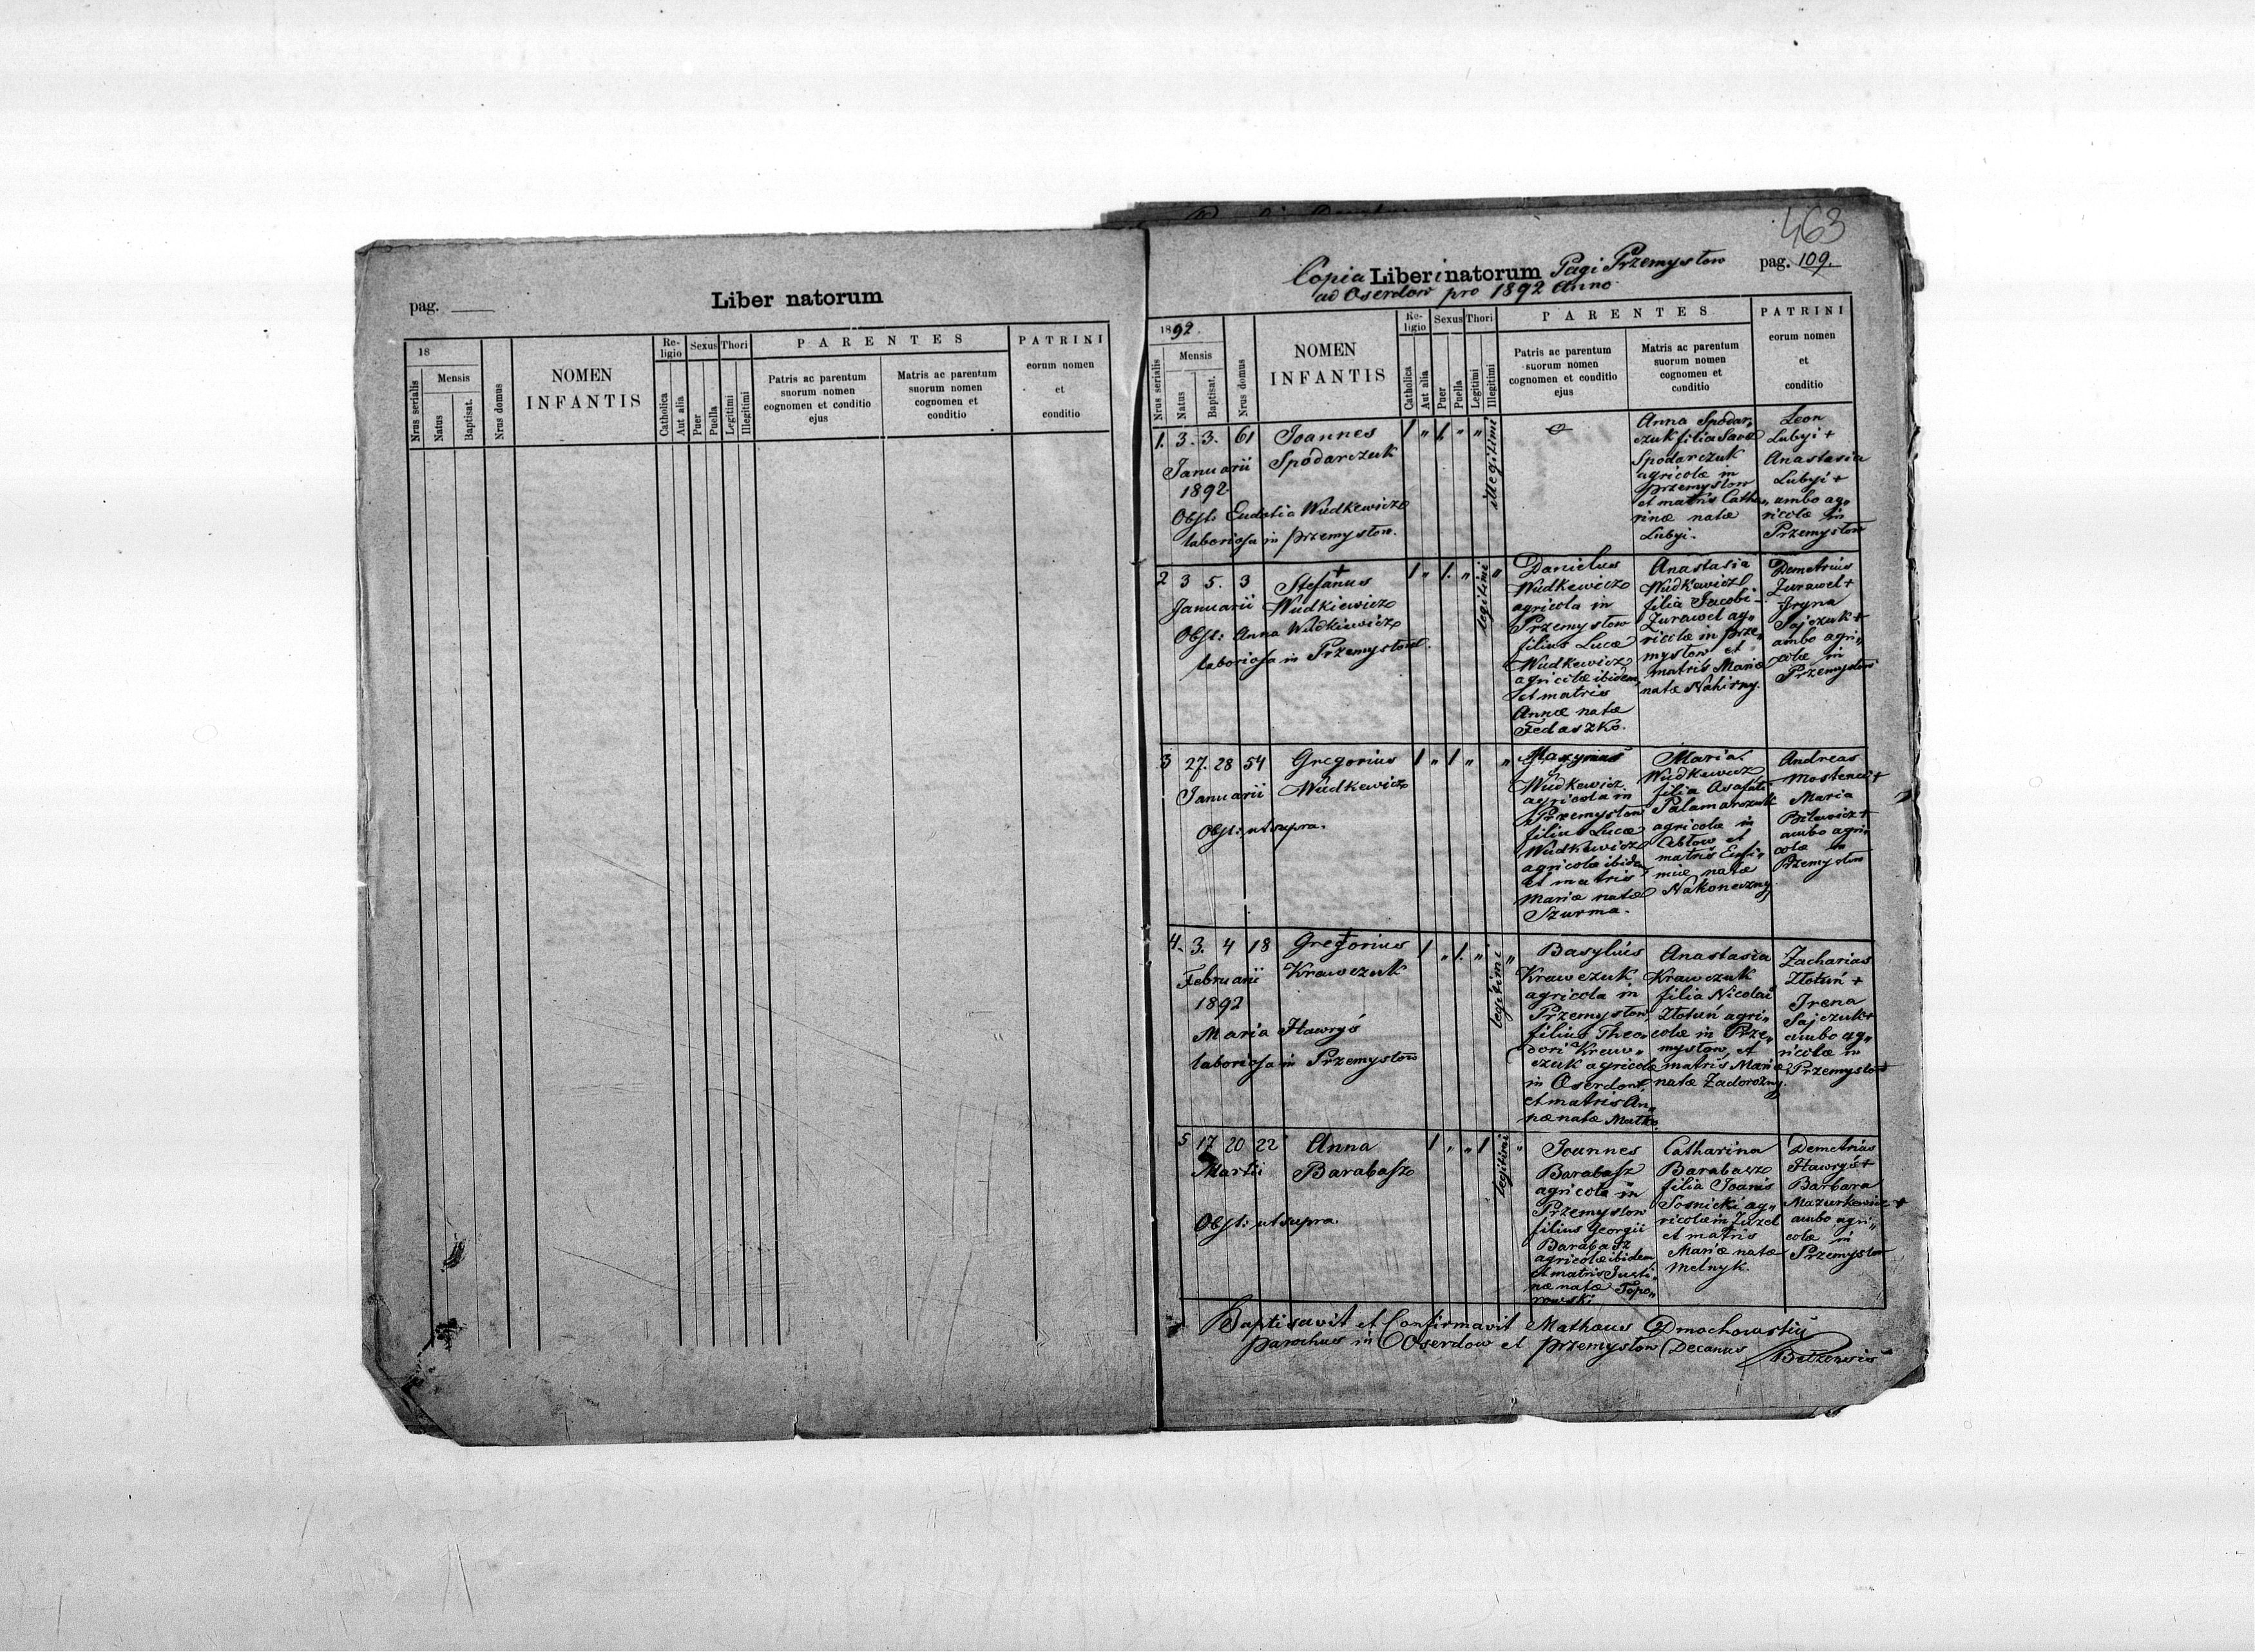 pag.
Liber natorum
18
Nrus serialis
Mensis
Natus
Baptisat.
Nrus domus
NOMEN
INFANTIS
Re-
ligio
Catholica
Aut alia
Sexus
Puer
Puella
Thori
Legitimi
Illegitimi
PARENTES
Patris ac parentum
suorum nomen
cognomen et conditio
ejus
Matris ac parentum
suorum nomen
cognomen et
conditio
PATRINI
eorum nomen
et
conditio
463
Copia Liberi natorum Pagi Przemysłow
pag. 109.
ad Oserdow pro 1892 Anno.
1892.
Nrus serialis
Mensis
Natus
Baptisat.
Nrus domus
NOMEN
INFANTIS
Re-
ligio
Catholica
Aut alia
Sexus
Puer
Puella
Thori
Legitimi
Illegitimi
PARENTES
Patris ac parentum
suorum nomen
cognomen et conditio
ejus
Matris ac parentum
suorum nomen
cognomen et
conditio
PATRINI
eorum nomen
et
conditio
1. 3. 3. 61 Joannes
Januarii Spodarczuk
1892
Obst: Eudokia Wudkewicz
laboriosa in Przemysłow.
1 „ 1. „ „
illegitimi
Anna Spodar„
czuk filia Savae
Spodarczuk
agricolæ in
Przemysłow
et matris Catha„
rinæ natæ
Lubyi.
Leon
Lubyi +
Anastasia
Lubyi +
ambo ag„
ricolæ in
Przemysłow
2 3 5. 3 Stefanus +
Januarii Wudkiewicz
Obst: Anna Wudkiewicz
laboriosa in Przemysłow.
1 „ 1. „ „
legitimi
Danielus
Wudkewicz
agricola in
Przemysłow
filius Lucæ
Wudkewicz
agricolæ ibidem,
et matris
Annæ natæ
Fedaszko.
Anastasia
Wudkewicz
filia Jacobi
Żurawel ag„
ricolæ in Prze„
mysłow et
matris Mariæ
natæ Nahirny.
Demetrius
Żurawel +
Iryna
Sajczuk +
ambo agri„
colæ in
Przemysłow
3 27. 28 54 Gregorius
Januarii Wudkewicz
Obst: ut supra.
1 „ 1 „ „
Wudkewicz
agricola in
Przemysłow
filius Lucæ
Wudkewicz
agricolæ ibidem
et matris
Mariæ natæ
Szurma.
Maria
Wudkewicz
filia Asafati
Palamarczuk
agricolæ in
Cebłow et
matris Eufi„
miæ natæ
Nakoneczny.
Andreas
+
Maria
Bilewicz +
ambo agri„
colæ in
Przemysłow
4. 3. 4 18 Gregorius +
Februarii Krawczuk
1892
Maria Hawryś
laboriosa in Przemysłow
1 „ 1. „ „
legitimi
Basylius
Krawczuk
agricola in
Przemysłow,
filius Theo„
dori Kraw„
czuk agricolæ
in Oserdow,
et matris An„
næ natæ Matko.
Anastasia
Krawczuk
filia Nicolai
Złotuń agri„
colæ in Prze„
mysłow, et
matris Mariæ
natæ Zadorożny.
Zacharias
Złotuń +
Irena
Sajczuk +
ambo ag„
ricolæ in
Przemysłow
5 17 20 22 Anna
Martii Barabasz
Obst: ut supra.
1 „ „ 1 „
legitimi
Joannes
Barabasz
agricola in
Przemysłow
filius Georgii
Barabasz
agricolæ ibidem
et matris Justi„
næ natæ Topo„
rowski
Catharina
Barabasz
filia Joanis
Sosnicki ag„
ricolæ in Żużel
et matris
Mariæ natæ
Melnyk.
Demetrius
Hawryś +
Barbara
Mazurkewicz +
ambo agri„
colæ in
Przemysłow
Baptisavit et Confirmavit Mathæus Dmochowski
parochus in Oserdow et Przemysłow Decanus
Bełzensis